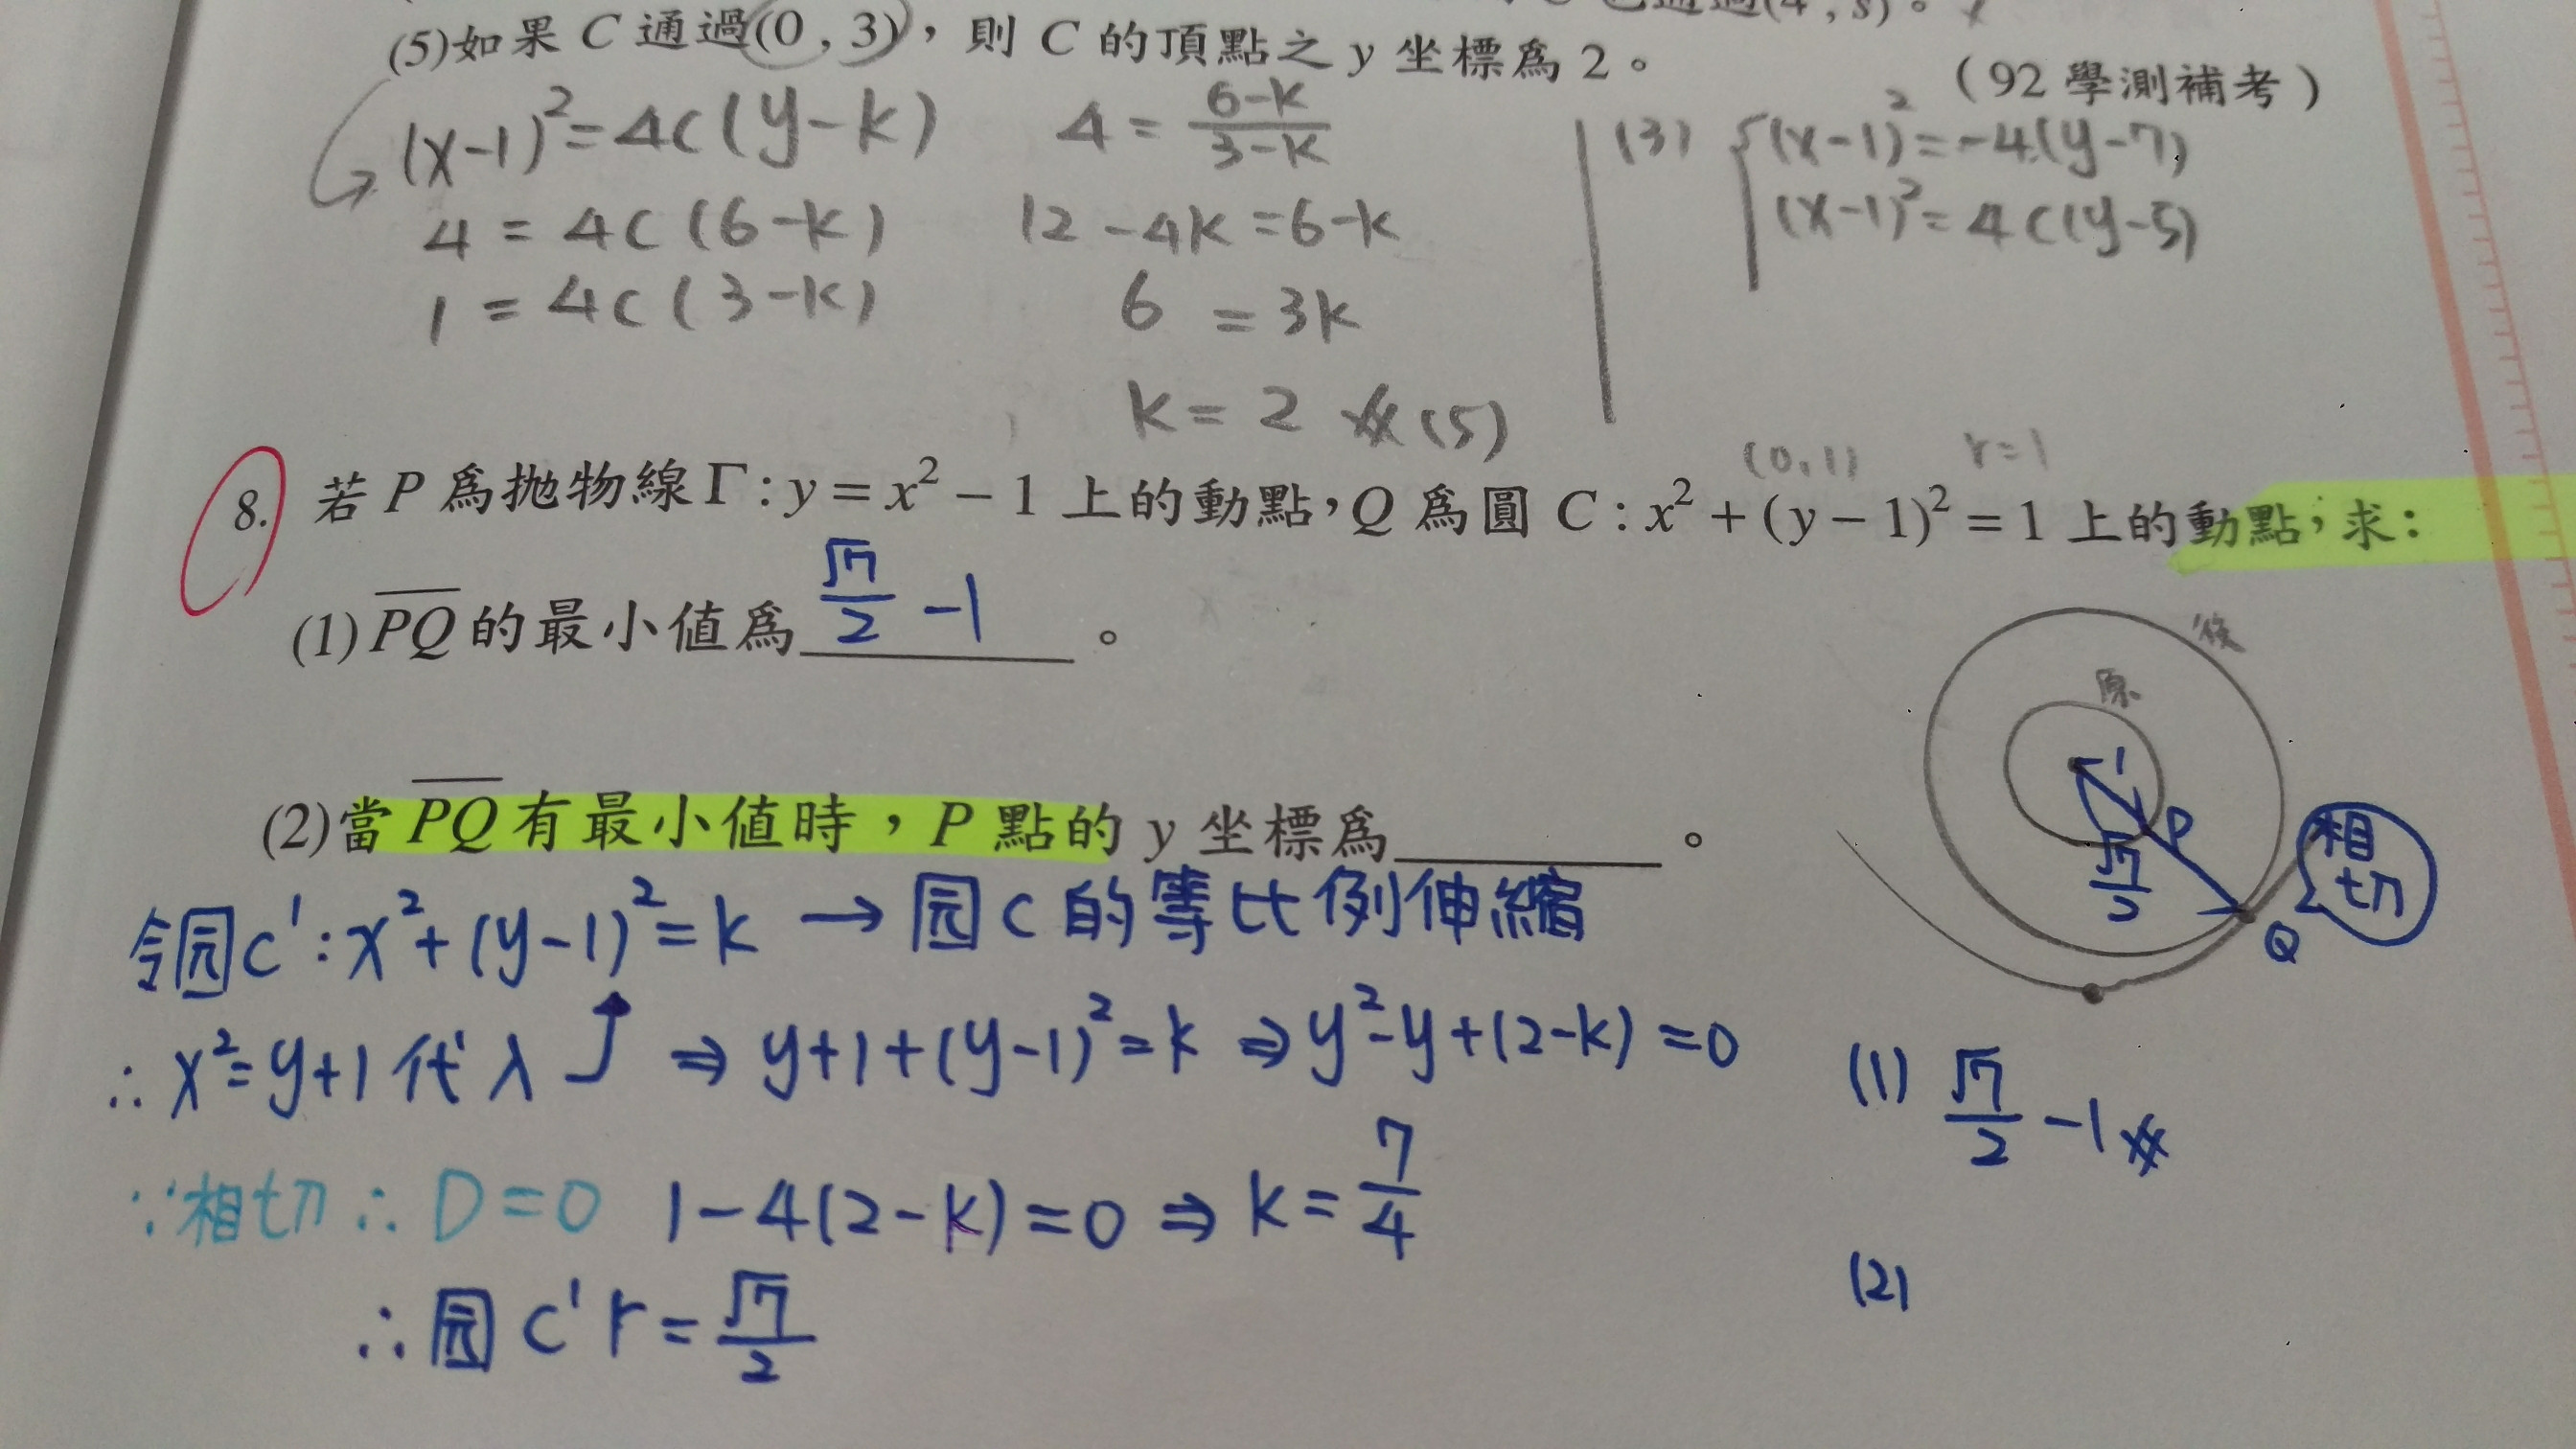 (5)如果 C 通過(0 , 3)，則 C 的頂點之 y 坐標爲 2。
(92 學測補考)
(x-1)²=4c(y-k)
4 = 4c(6-k)
1 = 4c(3-k)
4 = \frac{6-k}{3-k}
12-4k=6-k
6 = 3k
k = 2 (5)
(3) { (x-1)²=-4(y-7)
(x-1)²=4c(y-5)
(0,1) r=1
8. 若 P 爲拋物線 Γ : y = x² − 1 上的動點，Q 爲圓 C : x² + (y − 1)² = 1 上的動點，求：
(1) PQ 的最小值爲 \frac{√7}{2} -1 。
(2)當 PQ 有最小值時，P 點的 y 坐標爲 。
後
原
1
P
\frac{√7}{2}
相切
Q
令园C':x²+(y-1)²=k → 园C的等比例伸縮
∴ x²=y+1 代入 ⇒ y+1+(y-1)²=k ⇒ y²-y+(2-k)=0
∵相切 ∴ D=0 1-4(2-k)=0 ⇒ k=\frac{7}{4}
∴园 C' r=\frac{√7}{2}
(1) \frac{√7}{2} -1
(2)